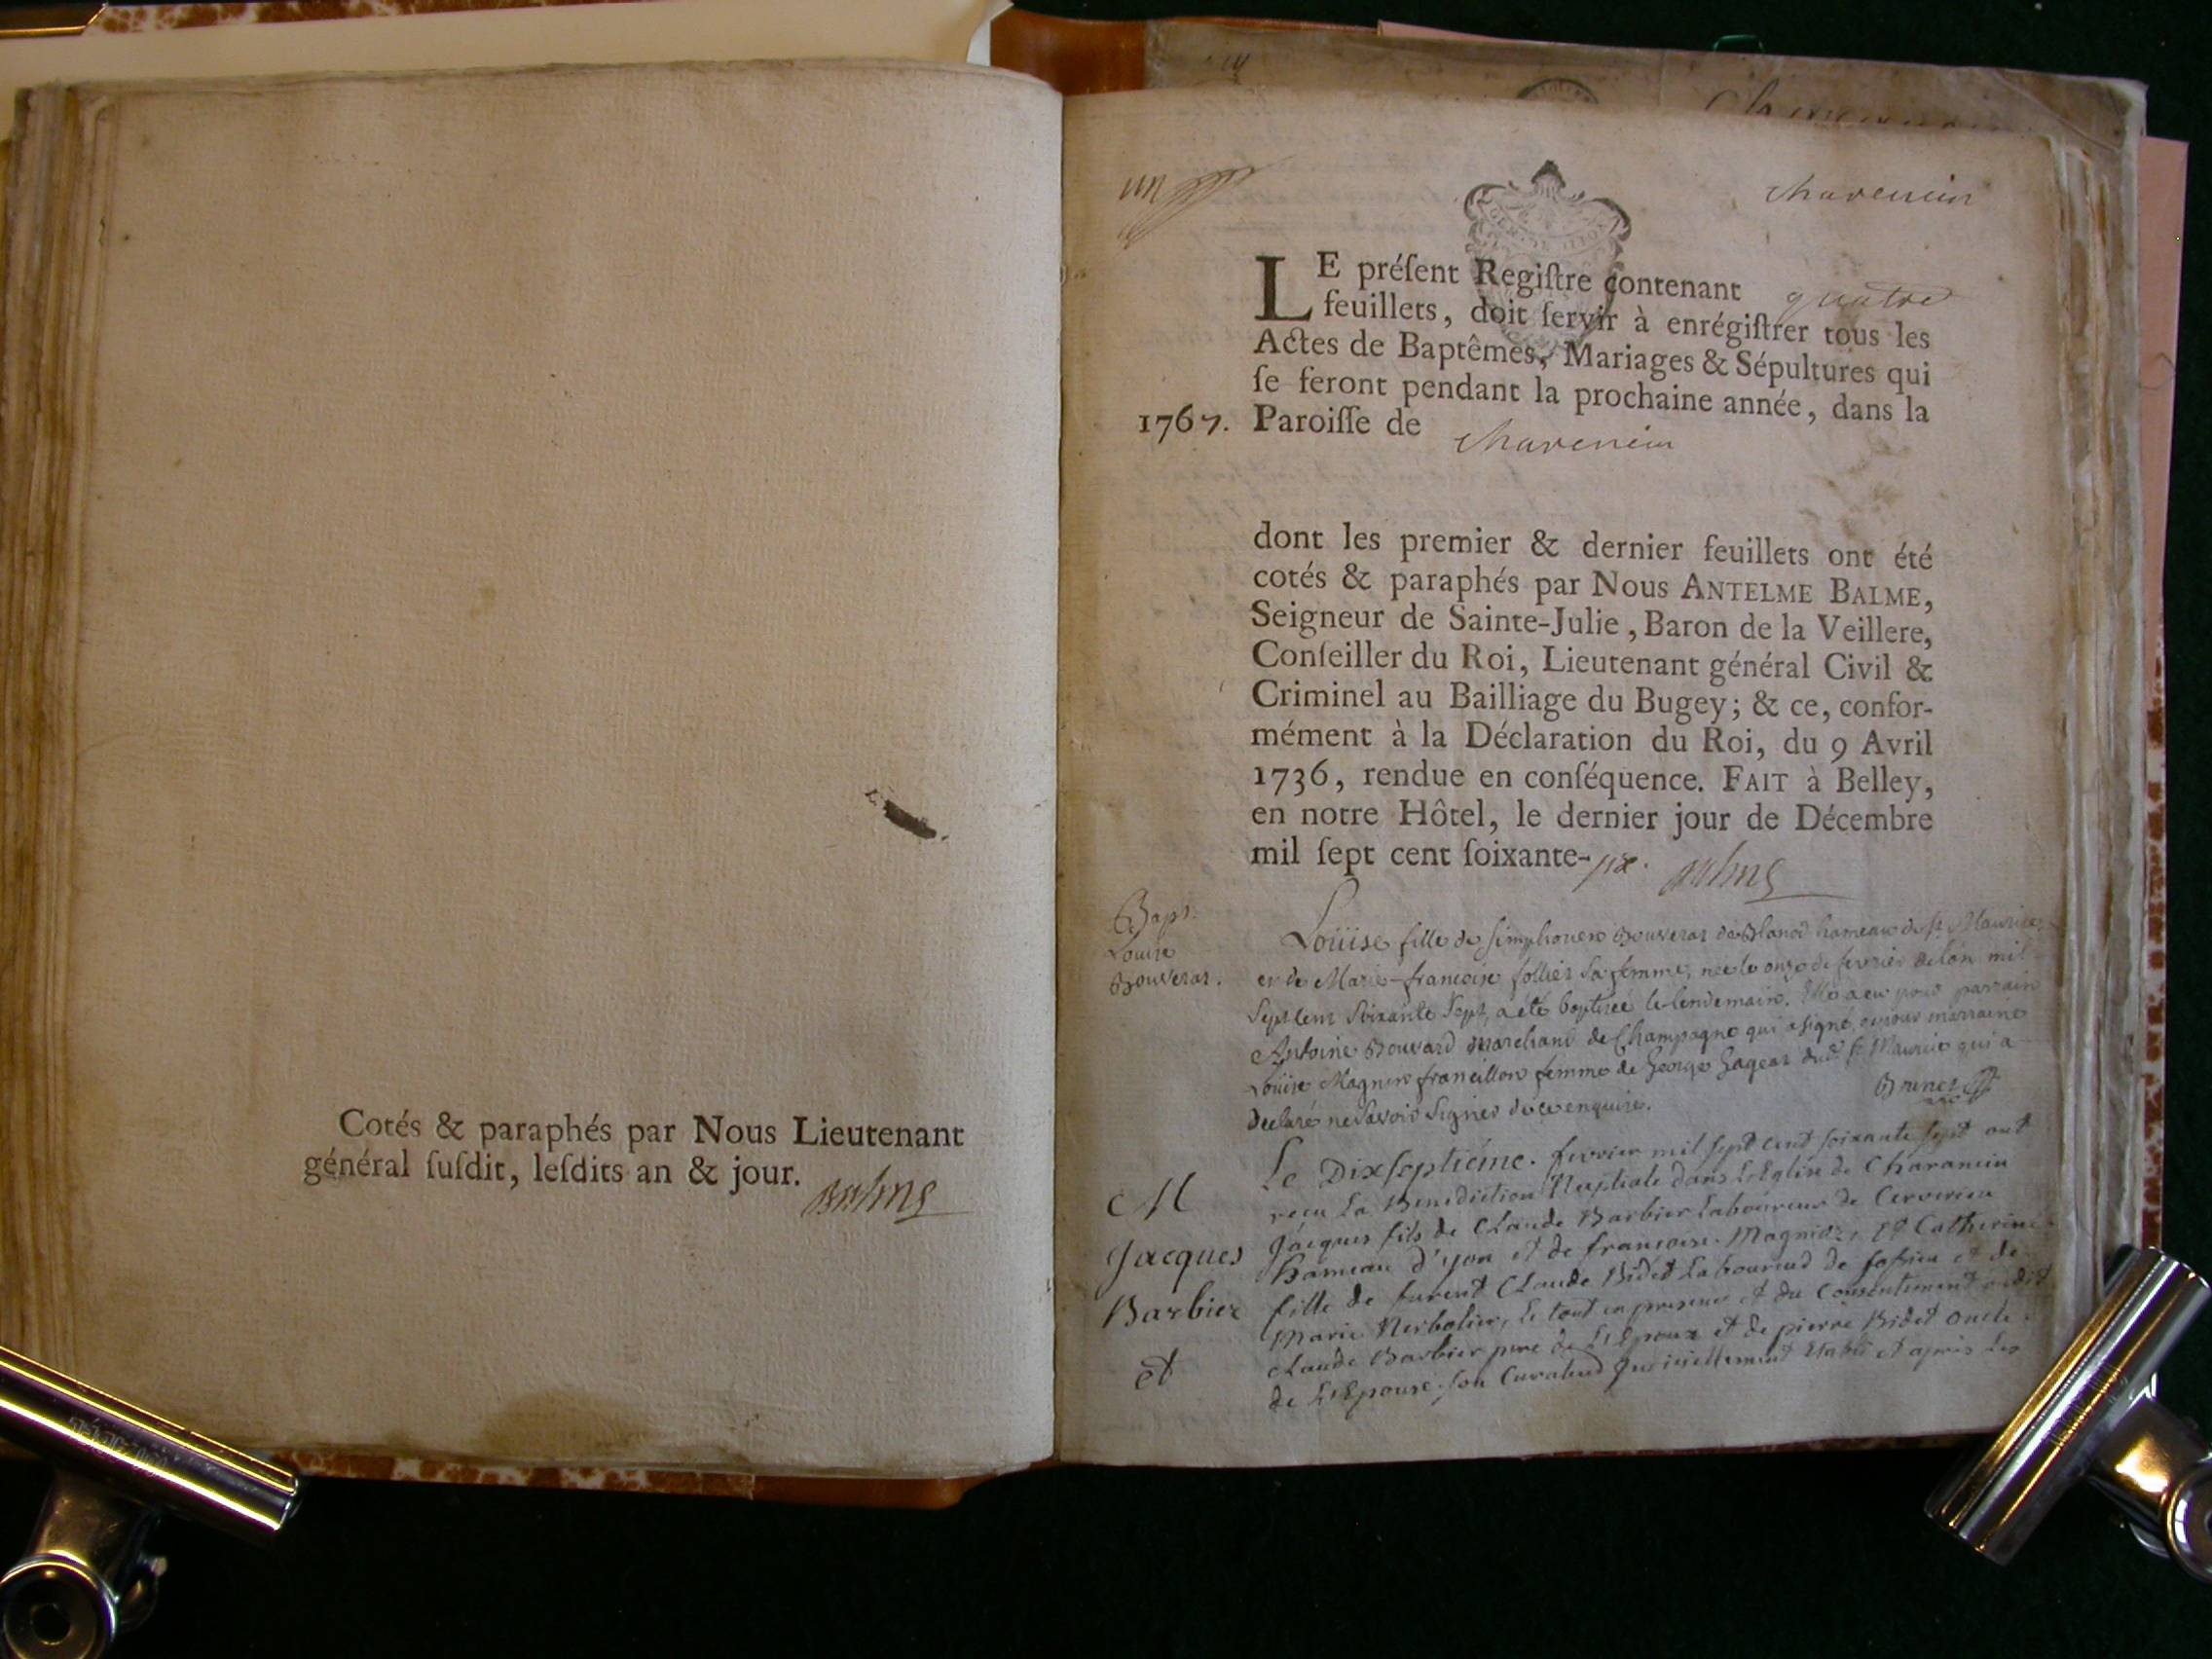 Cotés & paraphés par Nous Lieutenant
général ſuſdit, leſdits an & jour.
Balme
un
Charencin
LE préſent Regiſtre contenant quatre
feuillets, doit ſervir à enrégiſtrer tous les
Actes de Baptêmes, Mariages & Sépultures qui
ſe feront pendant la prochaine année, dans la
1767. Paroiſſe de Charencin
dont les premier & dernier feuillets ont été
cotés & paraphés par Nous ANTELME BALME,
Seigneur de Sainte-Julie, Baron de la Veillere,
Conſeiller du Roi, Lieutenant général Civil &
Criminel au Bailliage du Bugey; & ce, confor-
mément à la Déclaration du Roi, du 9 Avril
1736, rendue en conſéquence. FAIT à Belley,
en notre Hôtel, le dernier jour de Décembre
mil ſept cent ſoixante-six. Balme
Bapt.
Louise
Bouverat.
Loüise fille de Simphorien Bouverat de Blanod hameau de St. Maurice
et de Marie-francoise follier sa femme, née le onze de fevrier de l'an mil
sept cent soixante sept, a été baptisée le lendemain. Elle a eu pour parrain
Antoine Bouvard marchand de Champagne qui a signé, et pour marraine
Loüise Magnin francillon femme de George Gagear dud. St. Maurice qui a
declaré ne savoir signer de ce enquise. Brunet
M
Jacques
Barbier
et
Le Dixseptiéme fevrier mil sept cent soixante sept ont
recu la Benediction Nuptiale dans l'Eglise de Charancin
Jacques fils de Claude Barbier laboureur de Cerverieu
hameau d'yon et de francoise Magnin, et Catherine
fille de furent Claude Bidet laboureur de fossieu et de
Marie Nerbolier, le tout en presence et du Consentement dudit
Claude Barbier pere de l'Epoux et de pierre Bidet oncle
de l'Epouse son Curateur Judiciellement Etabli et après les